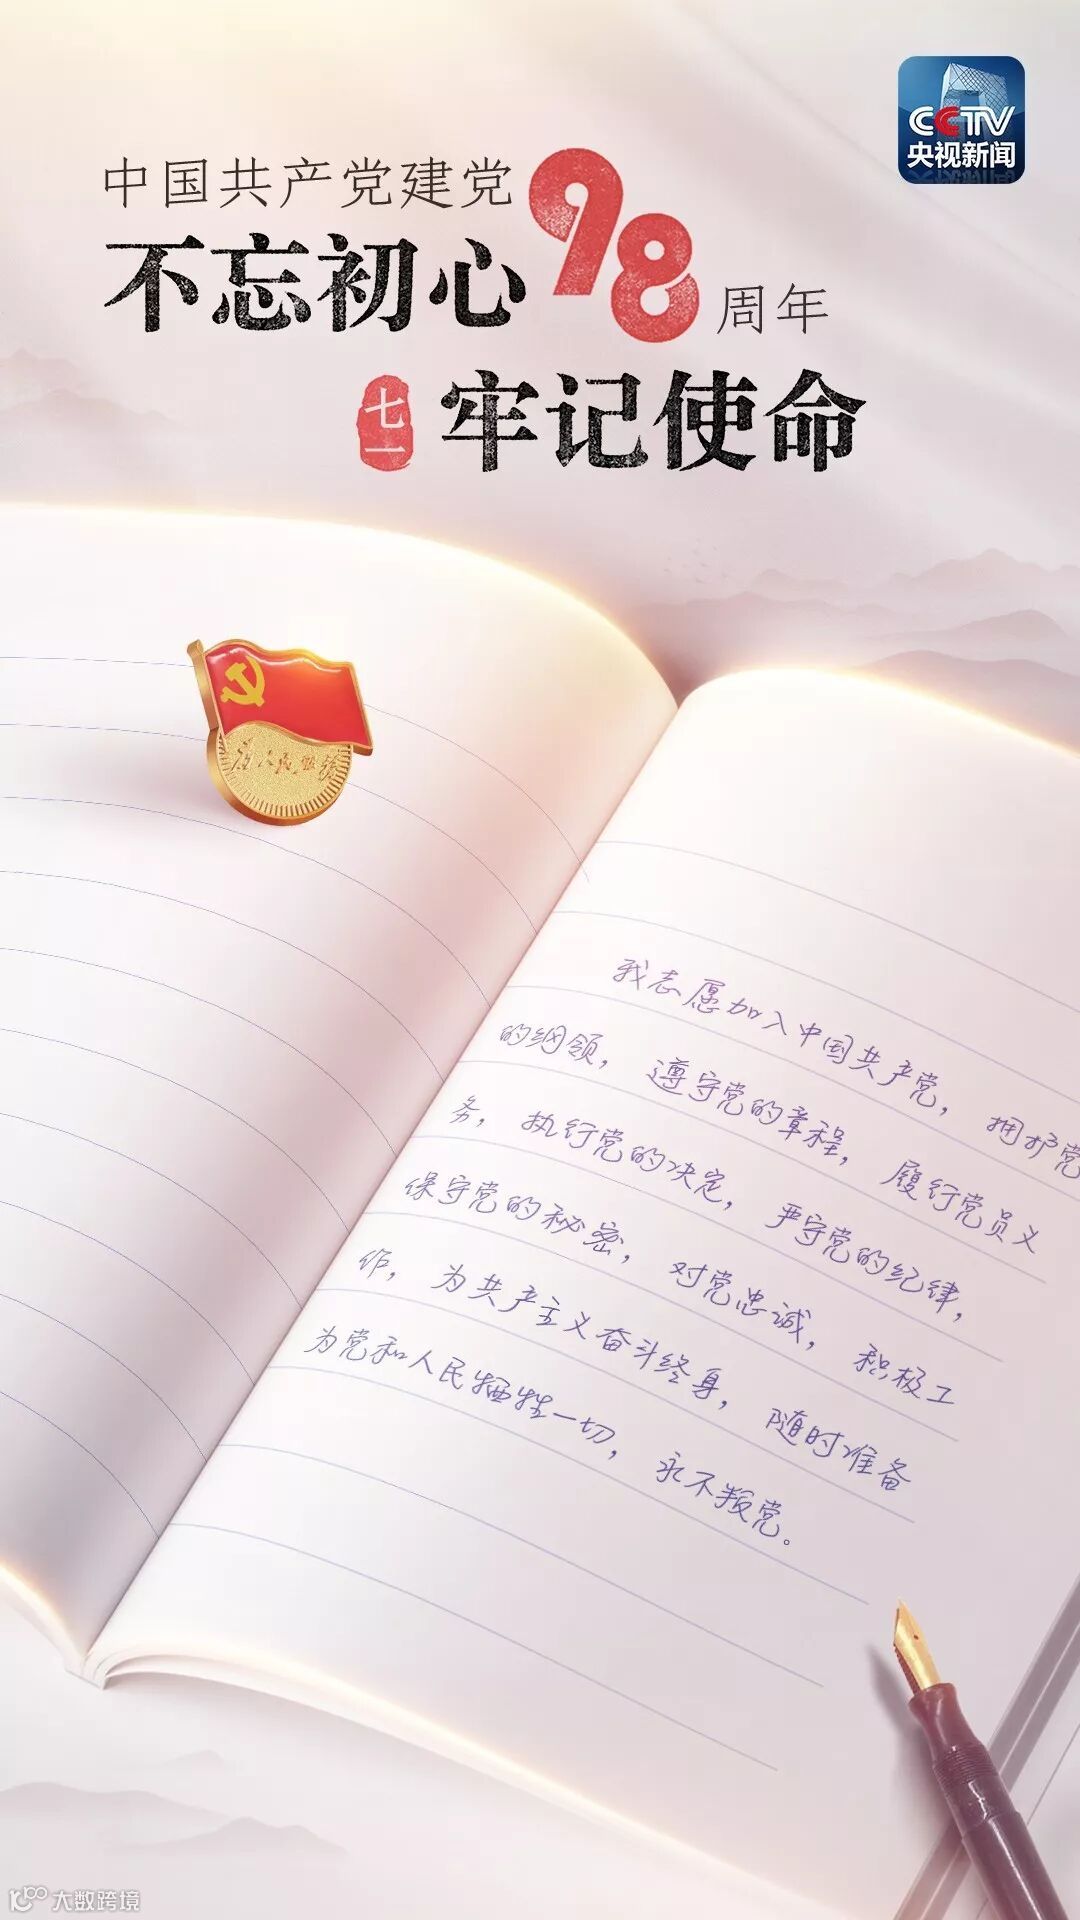 CCTV
央视新闻
中国共产党建党
98
周年
不忘初心
七一
牢记使命
为人民服务
我志愿加入中国共产党，拥护党
的纲领，遵守党的章程，履行党员义
务，执行党的决定，严守党的纪律，
保守党的秘密，对党忠诚，积极工
作，为共产主义奋斗终身，随时准备
为党和人民牺牲一切，永不叛党。
大数跨境